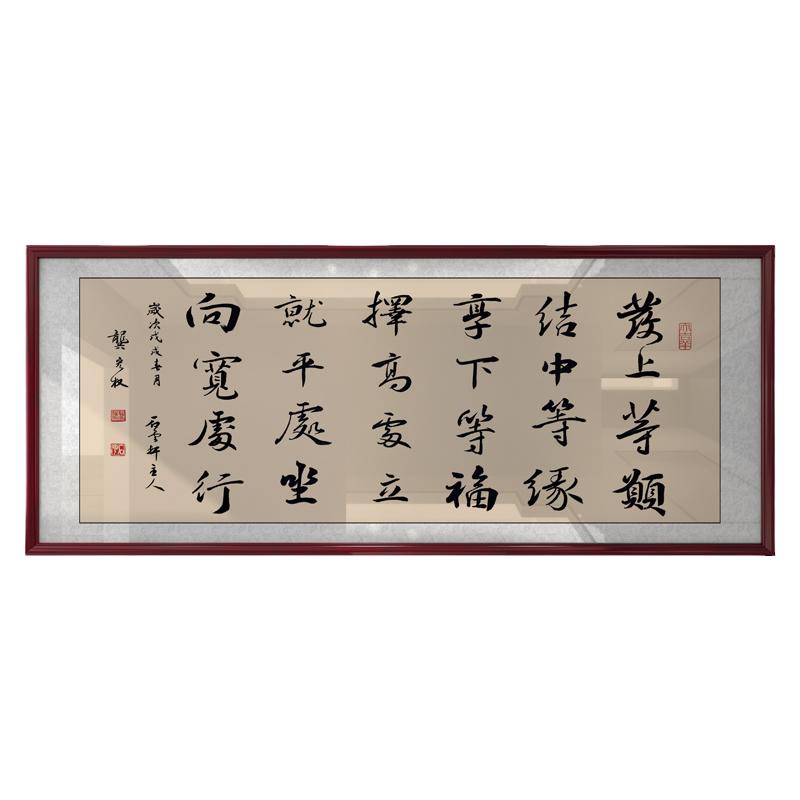 發上等願
結中等緣
享下等福
擇高處立
就平處坐
向寬處行
歲次戊戌春月 石雲軒主人
龔光權